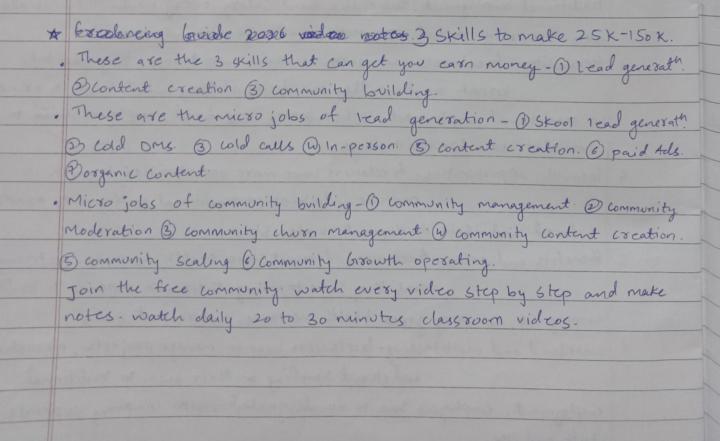 * Freelancing Guide 2026 video notes 3 Skills to make 25K-150K.
• These are the 3 skills that can get you earn money - ① Lead generatn.
② Content creation ③ community building.
• These are the micro jobs of lead generation - ① Skool lead generatn
② Cold DMs. ③ cold calls ④ In-person. ⑤ content creation. ⑥ paid Ads.
⑦ organic content
• Micro jobs of community building - ① community management. ② community
Moderation ③ community churn management ④ community content creation.
⑤ community scaling ⑥ community Growth operating.
Join the free community watch every video step by step and make
notes. watch daily 20 to 30 minutes classroom videos.